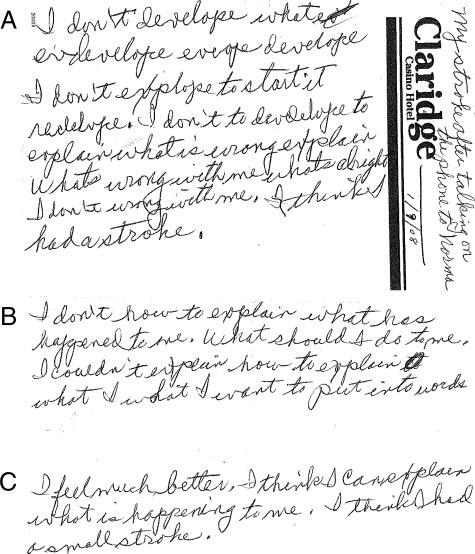 A
I don't develope what
evdevelope eveope develope
I don't explope to start it
redelope. I don't to devdelope to
explain what is wrong explain
Whats wrong with me whats alright
I don't wrong with me. I think I
had a stroke.
Claridge
Casino Hotel
1/9/08
My stroke after talking on
the phone to Norma
B
I don't how to explain what has
happened to me. What should I do to me.
I couldn't expain how to explain
what I what I want to put into words
C
I feel much better. I think I can explain
what is happening to me. I think I had
a small stroke.